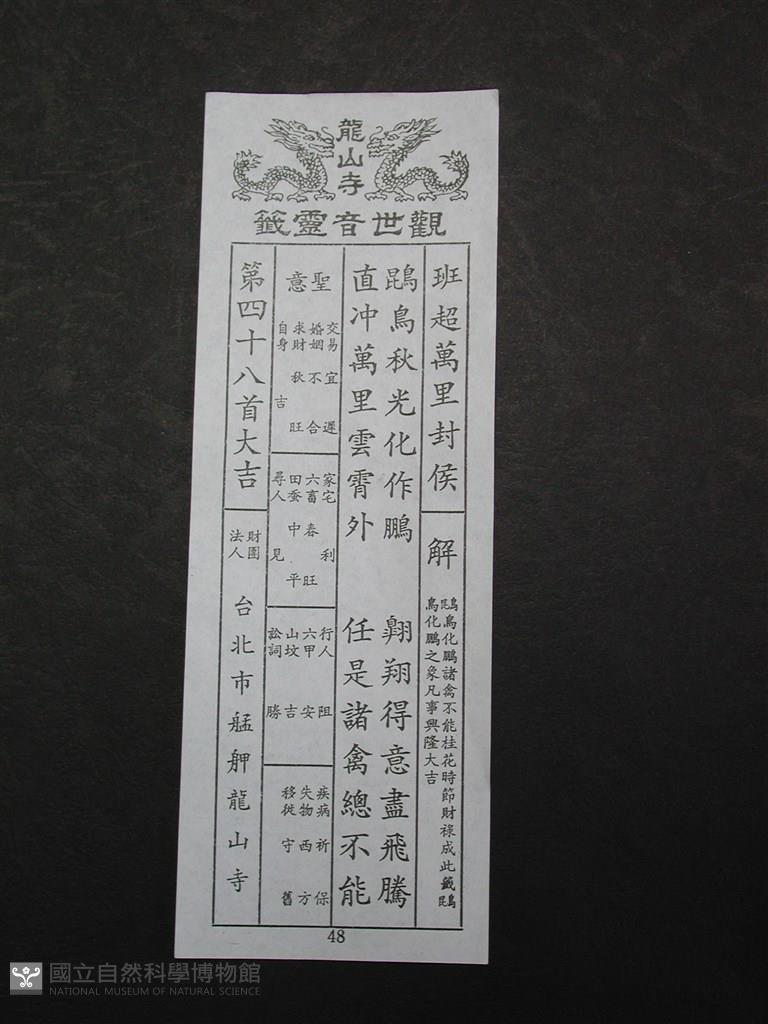 龍山寺
觀世音靈籤
班超萬里封侯
解
鵾鳥化鵬諸禽不能桂花時節財祿成此籤鵾
鳥化鵬之象凡事興隆大吉
鵾鳥秋光化作鵬 翺翔得意盡飛騰
直冲萬里雲霄外 任是諸禽總不能
聖意
交易 宜遲
婚姻 不合
求財 秋旺
自身 吉
家宅 利
六畜 春旺
田蚕 中平
尋人 見
行人 阻
六甲 安
山墳 吉
訟詞 勝
疾病 祈保
失物 西方
移徙 守舊
第四十八首大吉
財團法人 台北市艋舺龍山寺
48
國立自然科學博物館
NATIONAL MUSEUM OF NATURAL SCIENCE